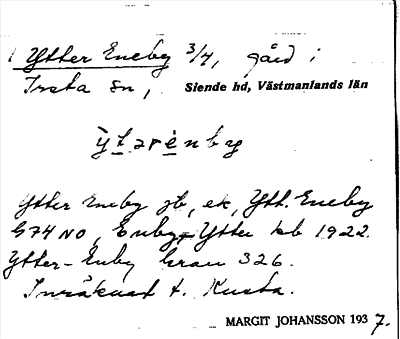 1 Ytter Eneby 3/4, gård i
Irsta sn, Siende hd, Västmanlands län
ỳtərènby
Ytter Eneby jb, ek, Ytt. Eneby
G74 NO, Enby, Ytter kb 1922.
Ytter-Enby kran 326.
Inräknat t. Kusta.
MARGIT JOHANSSON 1937.